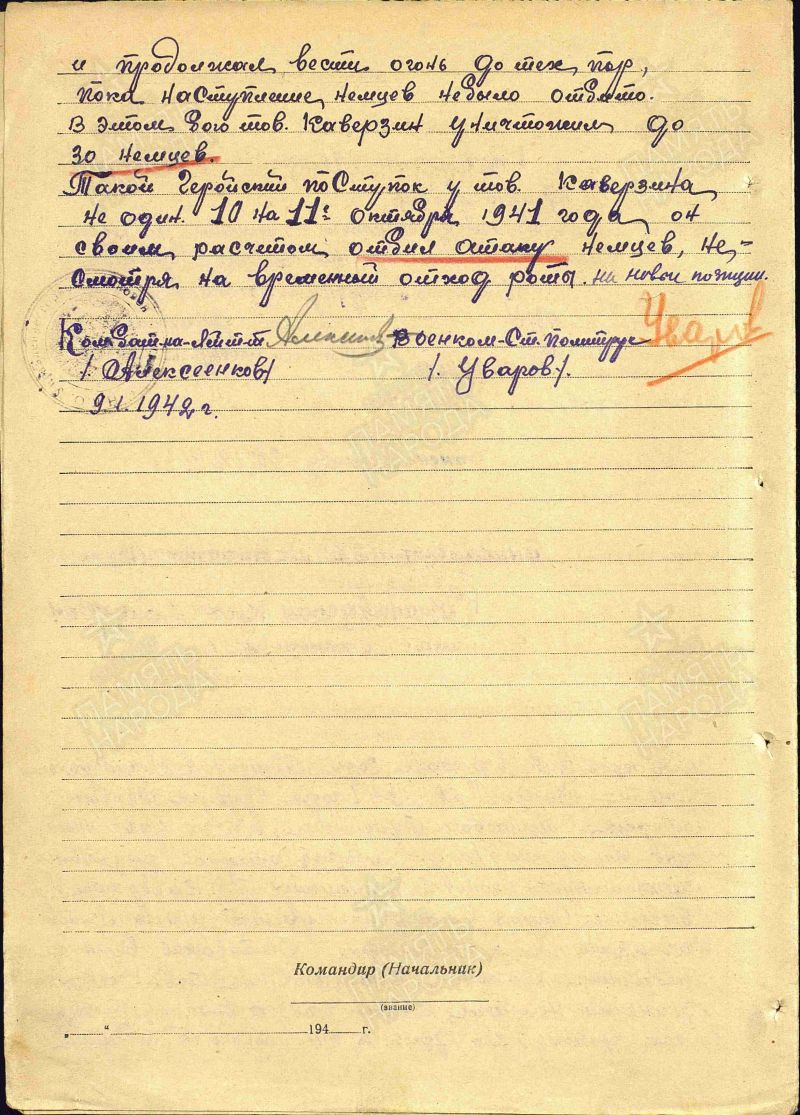 и продолжал вести огонь до тех пор,
пока наступление немцев небыло отбито.
В этом бою тов. Каверзин уничтожил до
30 немцев.
Такой Геройский поступок у тов. Каверзина
не один. 10 на 11: октября 1941 года он
своим расчетом отбил атаку немцев, не-
смотря на временный отход роты. на новои позиции.
Ком. Бат-на-Л-т-т Военком-Ст. Политрук Уваров
/. Алексеенков/ /. Уваров/.
9.1.1942 г.
ПАМЯТЬ НАРОДА
Командир (Начальник)
(звание)
„ “ 194 г.